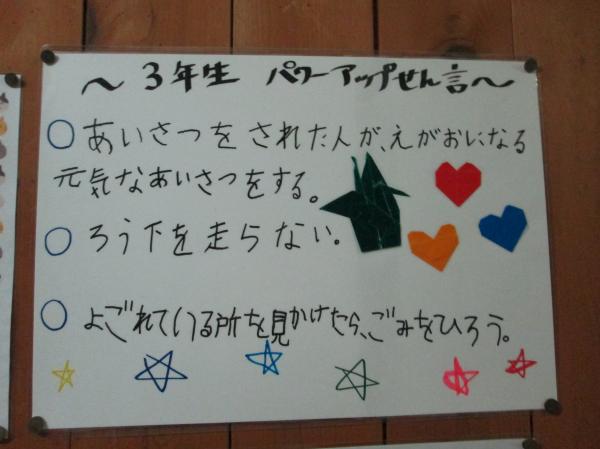 ～3年生 パワーアップせん言～
○あいさつをされた人が、えがおになる
元気なあいさつをする。
○ろう下を走らない。
○よごれている所を見かけたら、ごみをひろう。